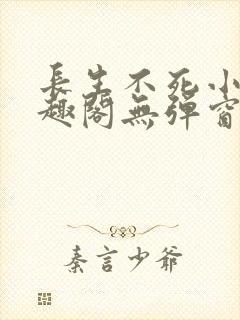 長生不死小
趣閣無彈窗
秦言少爺